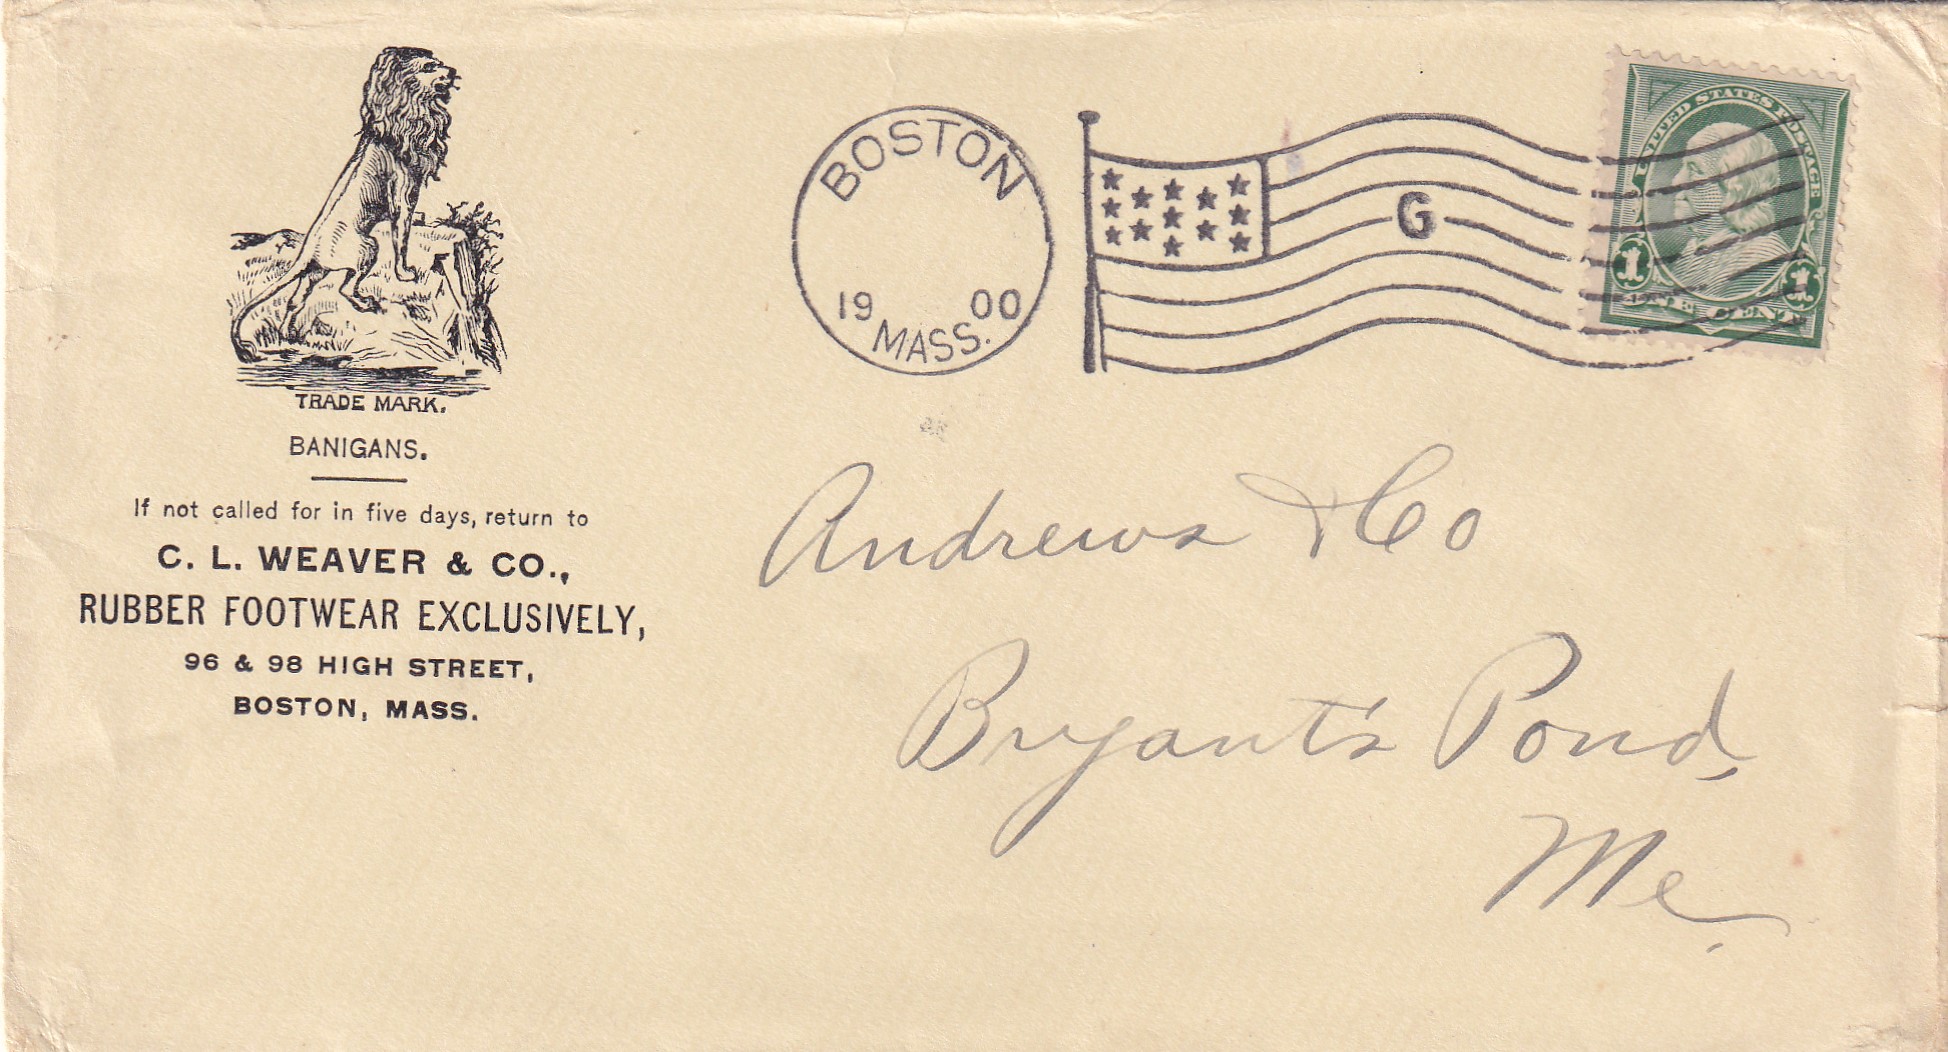 TRADE MARK.
BANIGANS.
If not called for in five days, return to
C. L. WEAVER & CO.,
RUBBER FOOTWEAR EXCLUSIVELY,
96 & 98 HIGH STREET,
BOSTON, MASS.
BOSTON
19 00
MASS.
G
UNITED STATES POSTAGE
1 1
ONE CENT
Andrews & Co
Bryant's Pond,
Me.